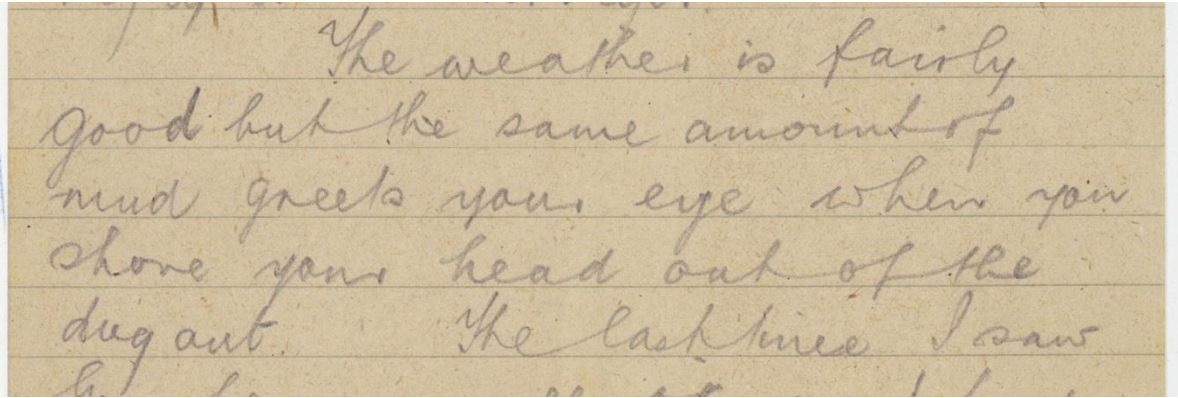 The weather is fairly
good but the same amount of
mud greets your eye when you
shove your head out of the
dug out. The last time I saw